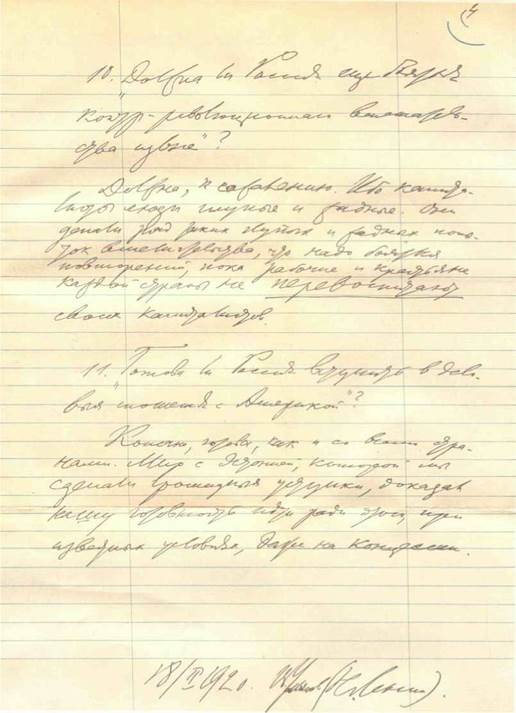 4
10. „Должна ли Россия еще бояться
контр-революционного вмешатель-
ства извне"?
Должна, к сожалению. Ибо капита-
листы люди глупые и жадные. Они
делали ряд таких глупых и жадных попы-
ток вмешательства, что надо бояться
повторений, пока рабочие и крестьяне
каждой страны не перевоспитают
своих капиталистов.
11. „Готова ли Россия вступить в дело-
вые сношения с Америкой"?
Конечно, готова, как и со всеми стра-
нами. Мир с Эстонией, которой мы
сделали громадные уступки, доказал
нашу готовность идти ради этого, при
известных условиях, даже на концессии.
18/II 1920. В. Ульянов (Н. Ленин).